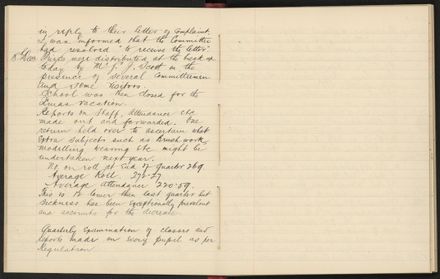 in reply to their letter of complaint,
I was informed that the Committee
had resolved "to receive the letter".
Prizes were distributed at the head
today by Mr J. J. Scott in the
presence of several Committeemen
and some visitors.
School was then closed for the
Xmas vacation.
Reports on Staff, Attendance etc
made out and forwarded. One
return held over to ascertain what
extra subjects such as Brush work
modelling drawing etc might be
undertaken next year.
No. on roll at end of Quarter 269
Average Roll
Average attendance 220.59.
This is lower than last quarter but
sickness has been exceptionally prevalent
and accounts for the decrease
Quarterly Examination of classes and
reports made on every pupil as per
Regulation